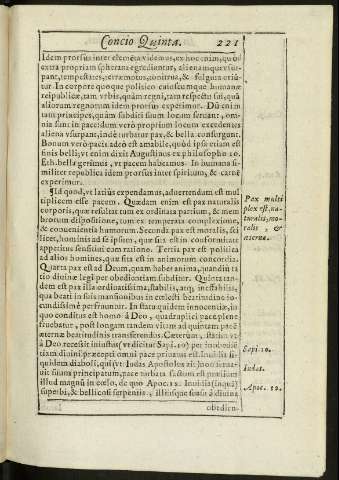 Concio Quinta. 221
Idem prorsus inter elemẽta videmus, ex hoc enim, quod
extra propriam spheram egrediuntur, alienamque vsur-
pant, tempestates, terræmotus, tonitrua, & fulgura oriũ-
tur. In corpore quoque politico cuiuscumque humanæ
reipublicæ, tam vrbis, quàm regni, tam respectu sui, quã
aliorum regnorum idem prorsus experimur. Dũ enim
tam principes, quàm subditi suum locum seruant, om-
nia sunt in pace: dum verò proprium locum excedentes
aliena vsurpant, indè turbatur pax, & bella consurgunt.
Bonum verò pacis adeò est amabile, quòd ipsa etiam est
finis belli; vt enim dixit Augustinus ex philosopho 10.
Eth. bella gerimus, vt pacem habeamus. In humana si-
militer republica idem prorsus inter spiritum, & carnẽ
experimur.
¶ Id quod, vt latiùs expendamus, aduertendum est mul
tiplicem esse pacem. Quædam enim est pax naturalis
corporis, quæ resultat tum ex ordinata partium, & mem
brorum dispositione, tum ex temperata complexione,
& conuenientia humorum. Secunda pax est moralis, sci
licet, hominis ad se ipsum, quæ sita est in conformitate
appetitus sensitiui cum ratione. Tertia pax est politica
ad alios homines, quæ sita est in animorum concordia.
Quarta pax est ad Deum, quam habet anima, quandiu ra
tio diuinæ legi per obedientiam subditur. Quinta tan-
dem est pax illa ordinatissima, stabilis, atq; instabilis,
qua beati in suis mansionibus in cœlesti beatitudine io-
cundissimè perfruuntur. In statu quidem innocentiæ, in
quo conditus est homo à Deo, quadruplici pace plenè
fruebatur, post longam tandem vitam ad quintam pacẽ
æternæ beatitudinis transferendus. Cæterum, statim vt
à Deo recessit iniustus (vt dicitur Sapi. 10) per inobediẽ
tiam diuini præcepti omni pace priuatus est. Inuidia si-
quidem diaboli, qui (vt Iudas Apostolus ait)
uit suum principatum, pace turbata factum est prælium
illud magnũ in cœlo, de quo Apoc. 12. Inuidia (inquã)
superbi, & bellicosi serpentis, illiusque seuasu à diuina
obedien-
Pax multi
plex est, na-
turalis, mo-
ralis, &
æterna.
Sapi. 10.
Iudas.
Apoc. 12.